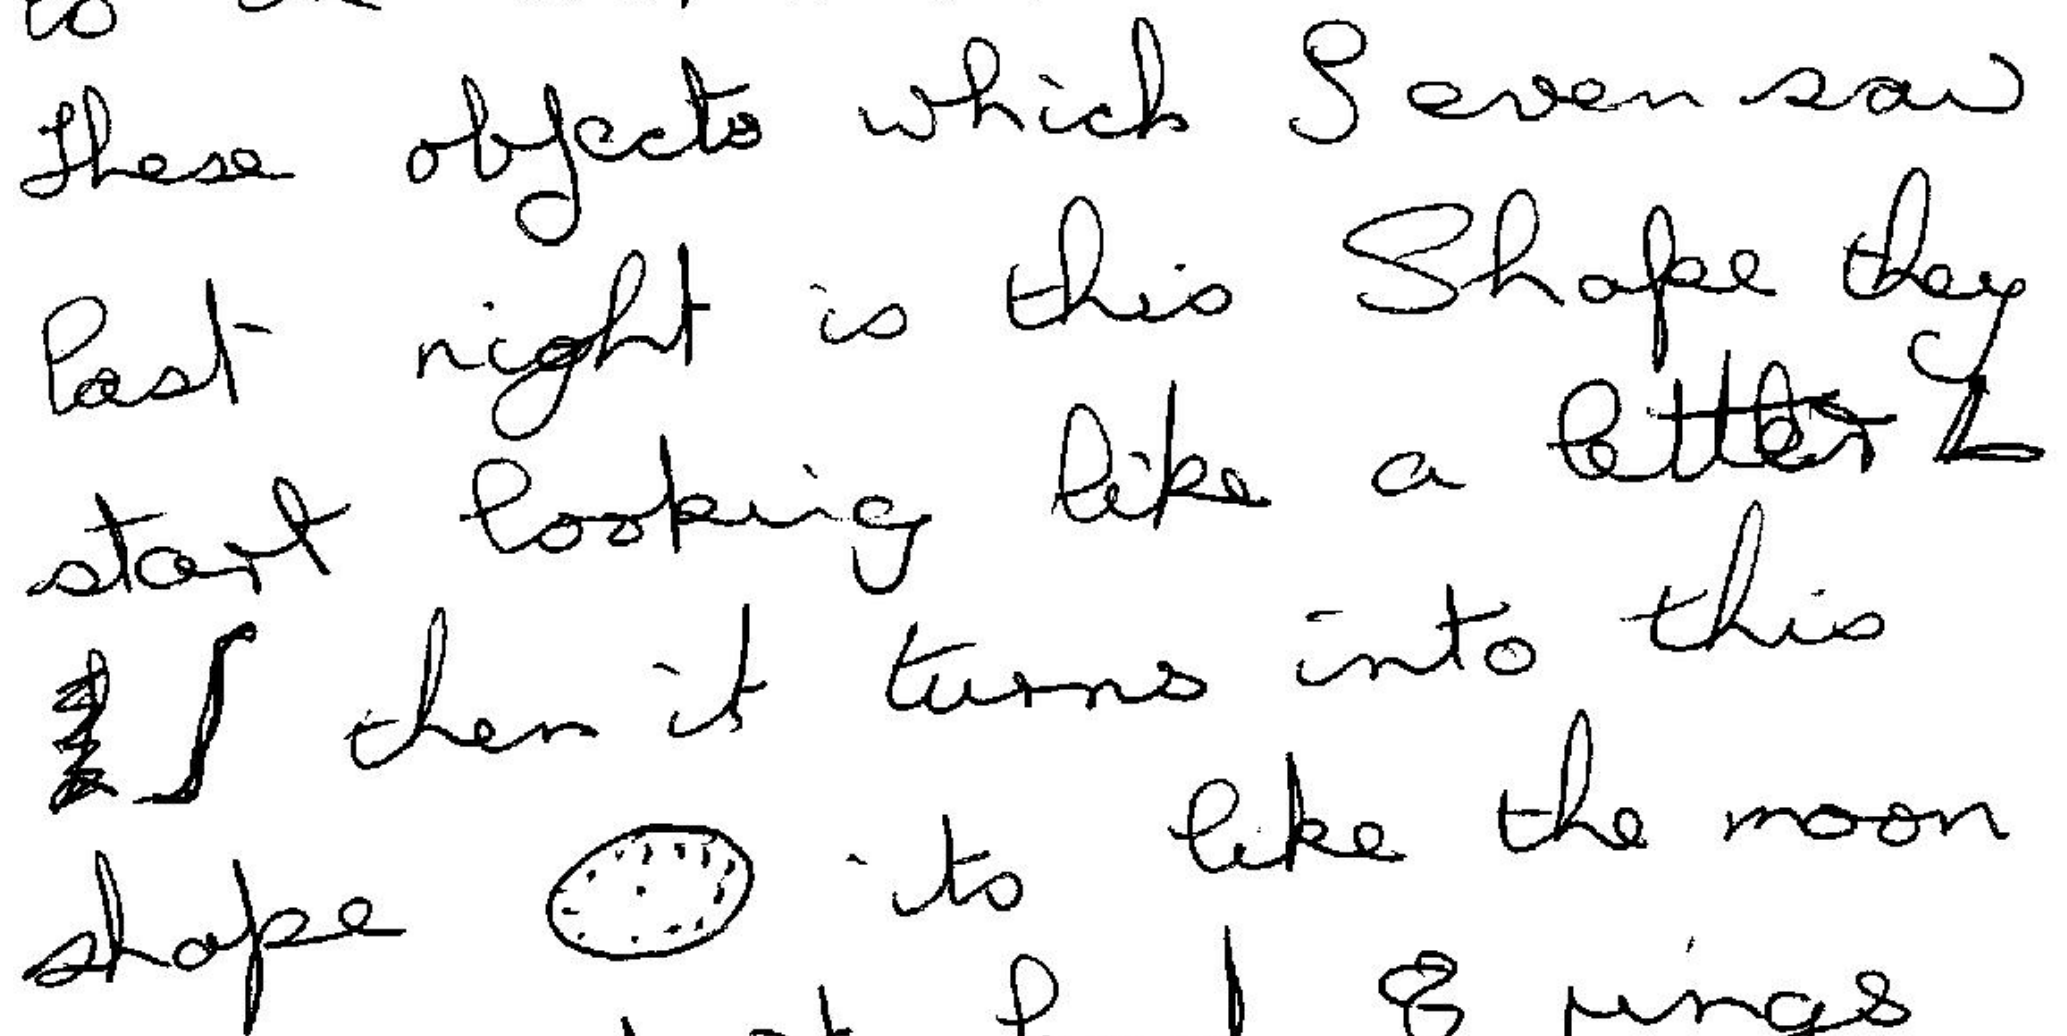 to
these objects which I even saw
last night is this Shape they
start looking like a letter L
then it turns into this
shape its like the moon
8 rings